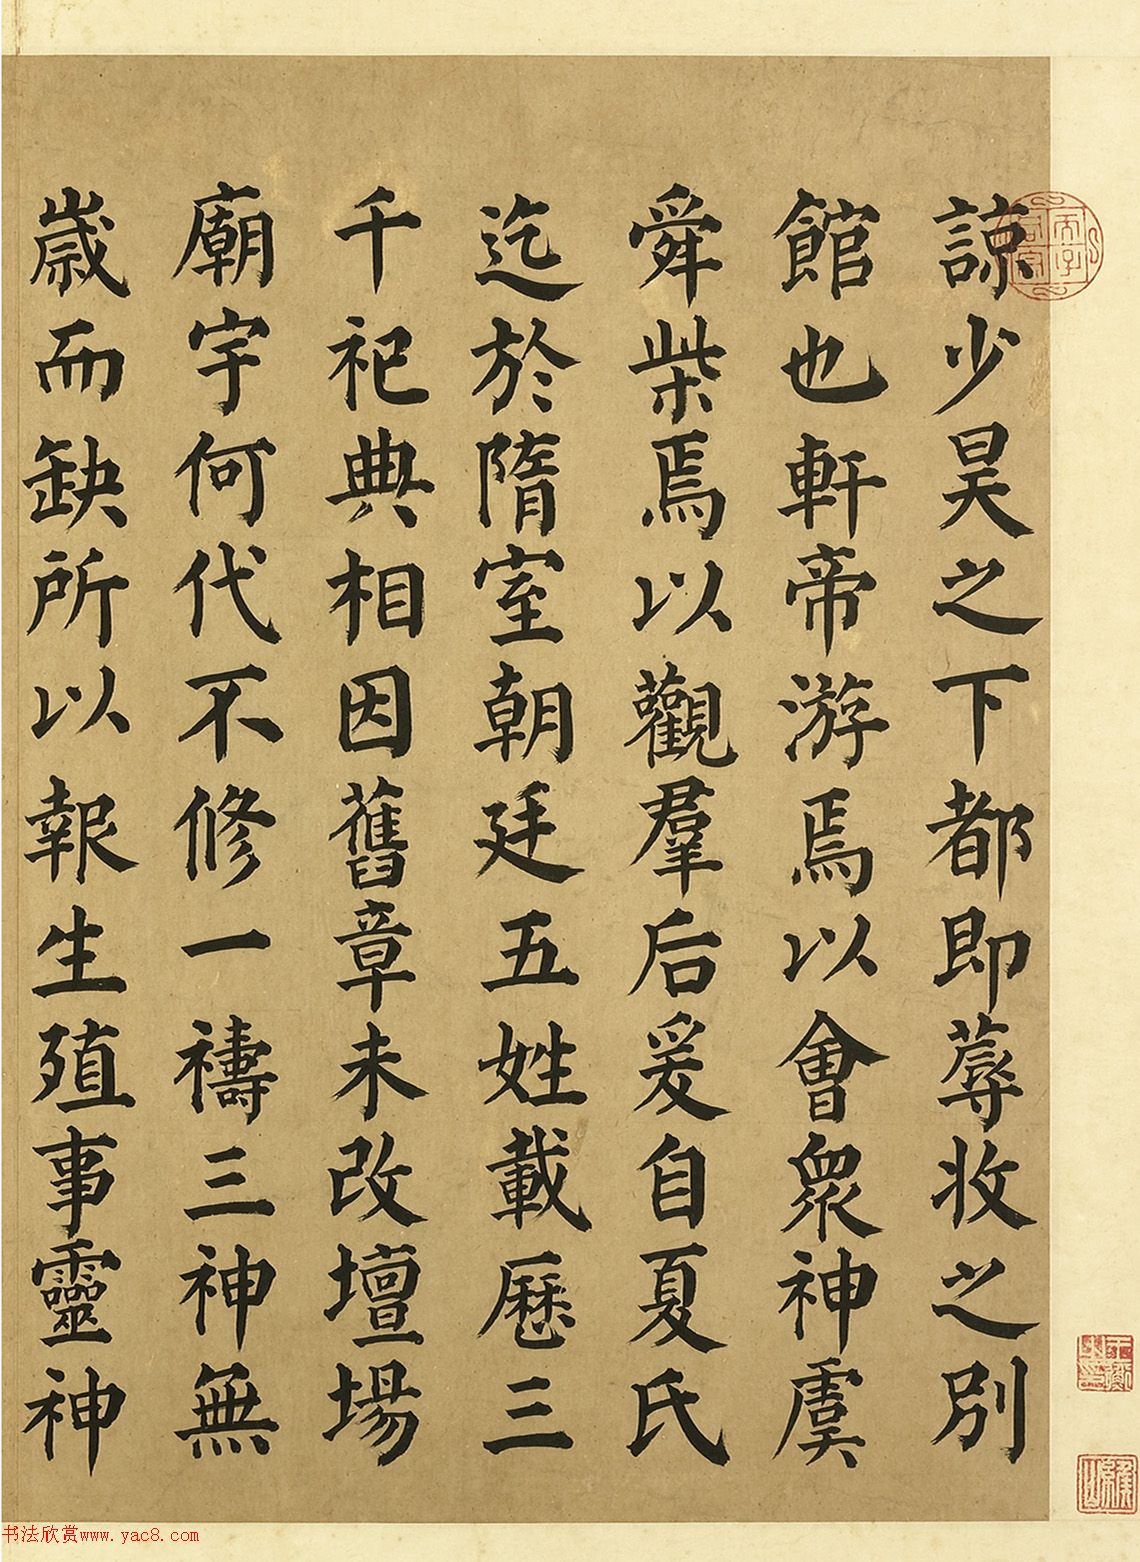 諒少昊之下都即蓐收之別
館也軒帝游焉以會眾神虞
舜柴焉以觀羣后爰自夏氏
迄於隋室朝廷五姓載歷三
千祀典相因舊章未改壇場
廟宇何代不修一禱三神無
歲而缺所以報生殖事靈神
书法欣赏www.yac8.com